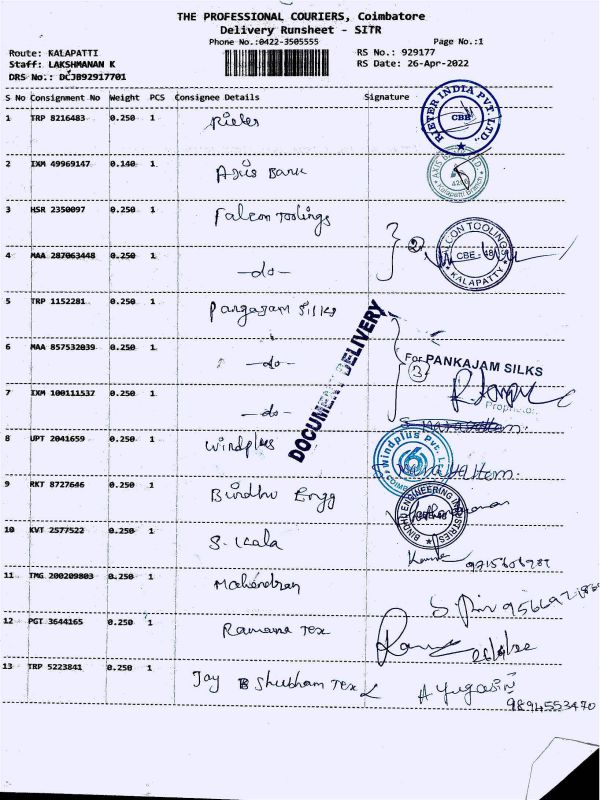 THE PROFESSIONAL COURIERS, Coimbatore
Delivery Runsheet - SITR
Phone No.:0422-3505555 Page No.:1
Route: KALAPATTI RS No.: 929177
Staff: LAKSHMANAN K RS Date: 26-Apr-2022
DRS No.: DCJB92917701
S No Consignment No Weight PCS Consignee Details Signature
1 TRP 8216483 0.250 1 Rieter
RIETER INDIA PVT. LTD. CBE
2 IXM 49969147 0.140 1 Axis Bank
Kalapatti Branch
3 HSR 2350097 0.250 1 Falcon Toolings
FALCON TOOLINGS CBE - 48 KALAPATTY
2
4 MAA 287063448 0.250 1 -do-
5 TRP 1152281 0.250 1 Pangajam Silks
DOCUMENT DELIVERY
6 MAA 857532039 0.250 1 -do-
For PANKAJAM SILKS
3
Proprietor.
7 IXM 100111537 0.250 1 -do-
8 UPT 2041659 0.250 1 Windplus
Windplus Pvt. Ltd.
9 RKT 8727646 0.250 1 Bindhu Engg
BINDHU ENGINEERING INDUSTRIES
10 KVT 2577522 0.250 1 S. Kala
11 TMG 200209803 0.250 1 Mahendran
12 PGT 3644165 1 Ramana Tex
26/4/22
13 TRP 5223841 0.250 1 Jay Shubham Tex
9894553470